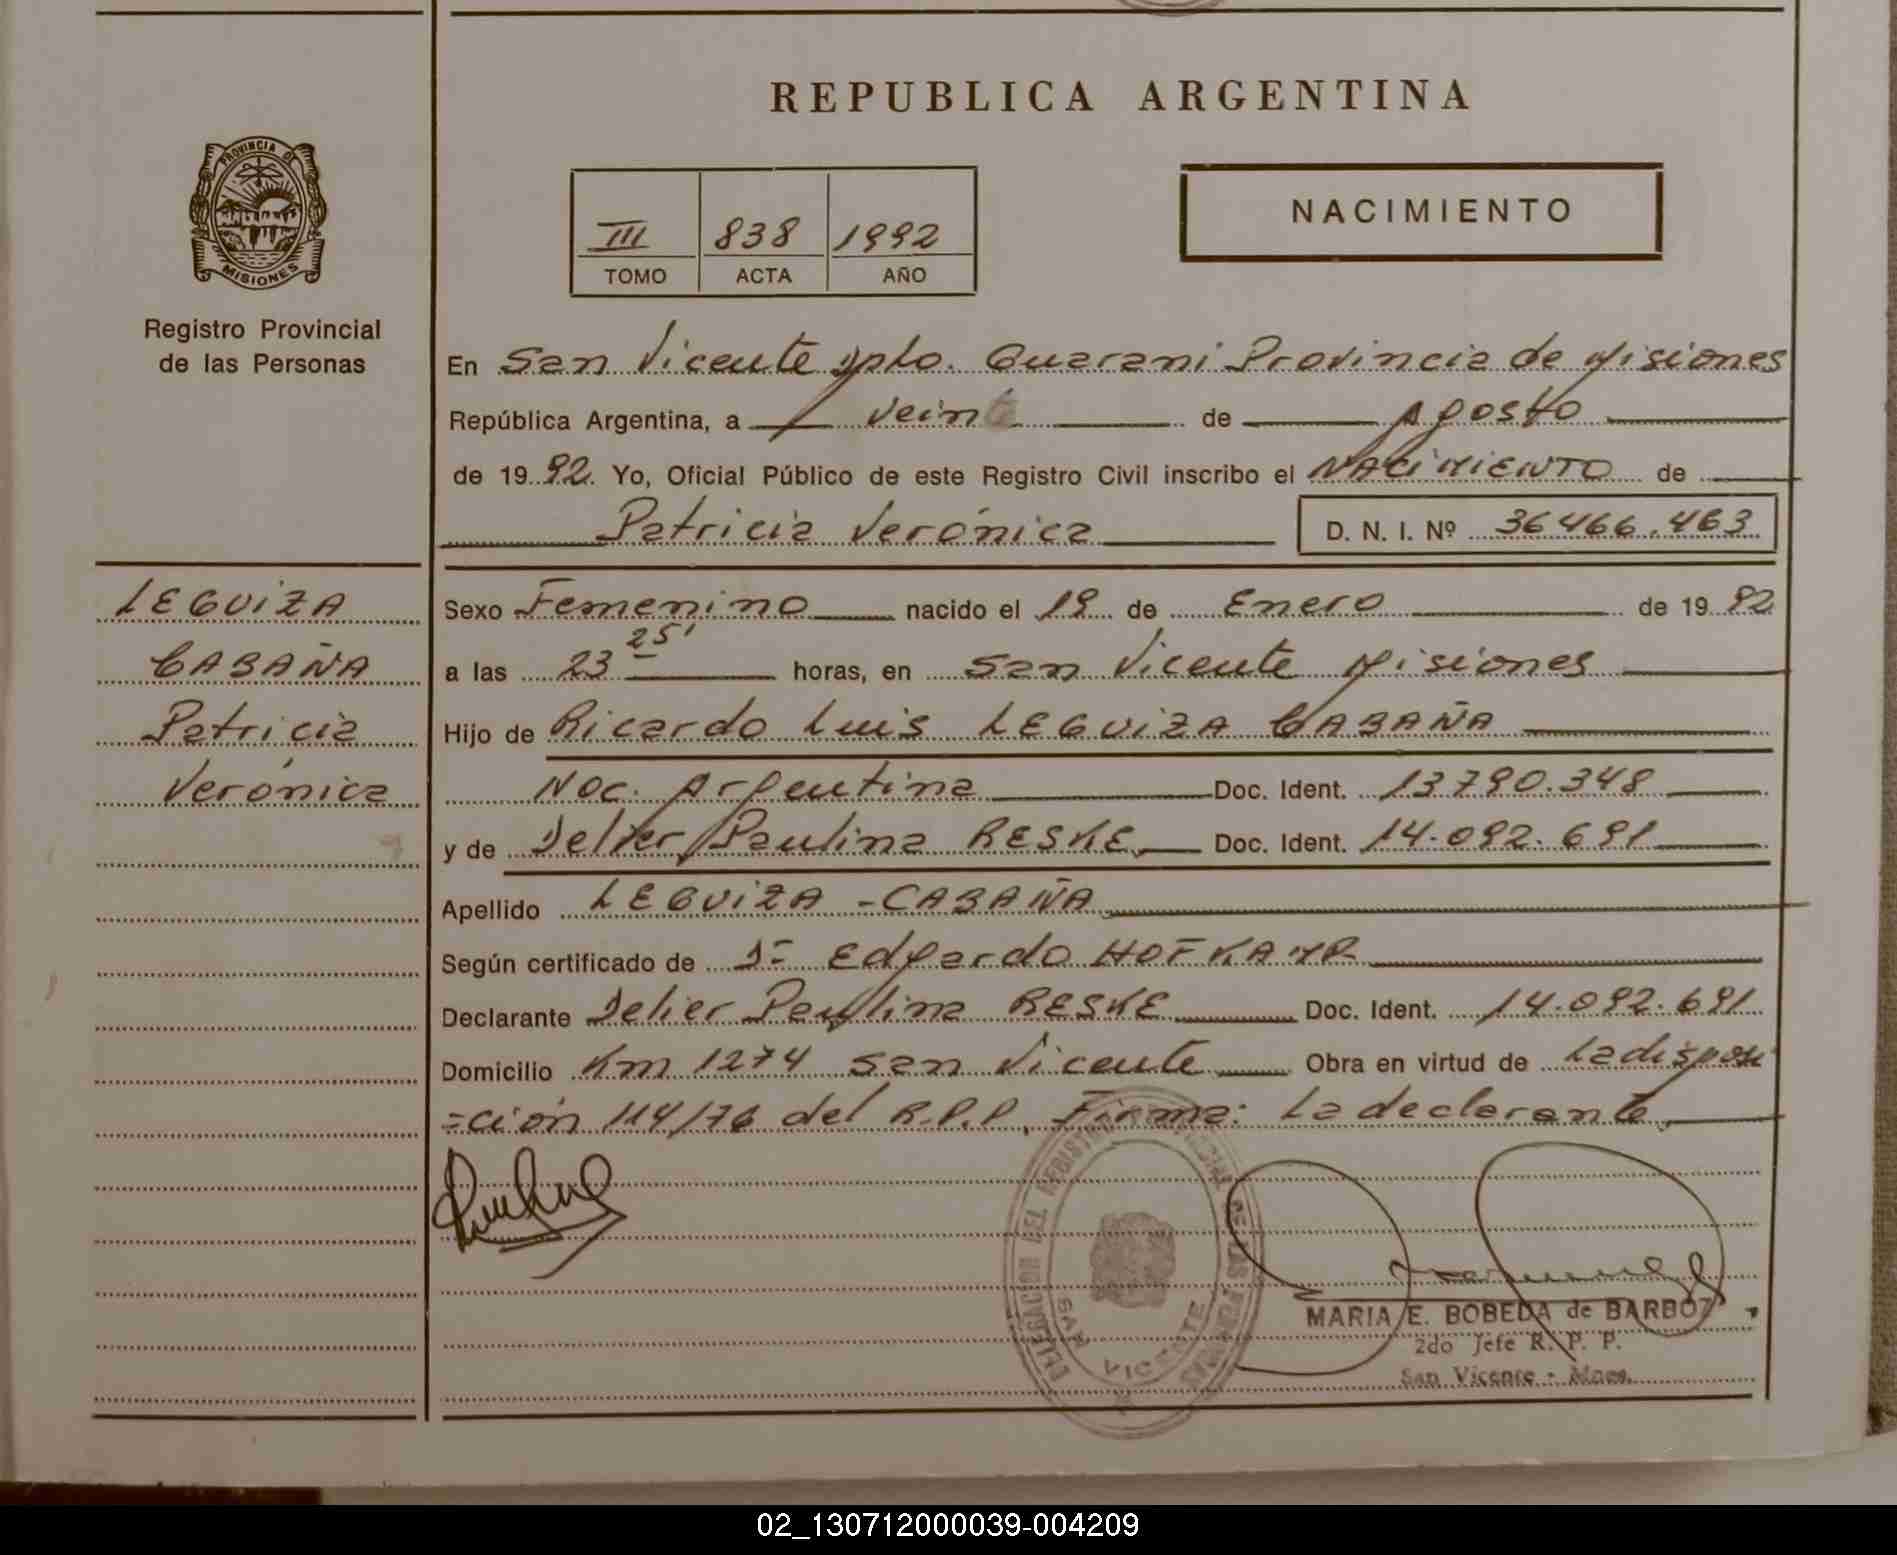 REPUBLICA ARGENTINA
PROVINCIA DE
MISIONES
Registro Provincial
de las Personas
III 838 1992
TOMO ACTA AÑO
NACIMIENTO
En San Vicente Dpto. Guarani Provincia de Misiones
República Argentina, a veinte de Agosto
de 1992. Yo, Oficial Público de este Registro Civil inscribo el NACIMIENTO de
Patricia Verónica D. N. I. Nº 36466.463
LEGUIZA
CABAÑA
Patricia
Verónica
Sexo Femenino nacido el 19 de Enero de 1992
a las 23 25' horas, en San Vicente Misiones
Hijo de Ricardo Luis LEGUIZA CABAÑA
Nac. Argentina Doc. Ident. 13790.348
y de Delier Paulina RESKE Doc. Ident. 14.092.691
Apellido LEGUIZA - CABAÑA
Según certificado de Dr Edgardo HOFKAMR
Declarante Delier Paulina RESKE Doc. Ident. 14.092.691
Domicilio Km 1274 San Vicente Obra en virtud de La disposi
=ción 114/76 del R.P.P. Firma: La declarante
DELEGACION DEL REGISTRO PROVINCIAL DE LAS PERSONAS
SAN VICENTE
MARIA E. BOBEDA de BARBOZ
2do Jefe R. P. P.
San Vicente - Mnes.
02_130712000039-004209